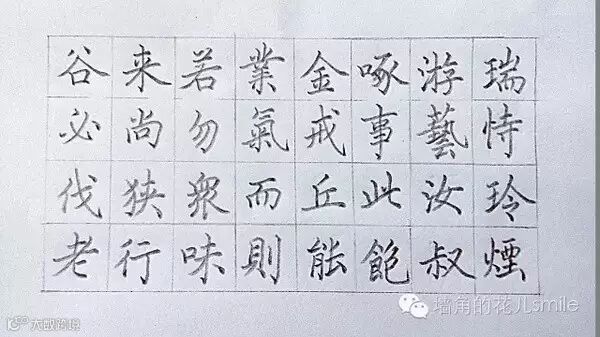 谷来若業金啄游瑞
必尚勿氣戒事藝恃
伐狹眾而丘此汝玲
老行味則能飽叔煙
墙角的花儿smile
大数跨境